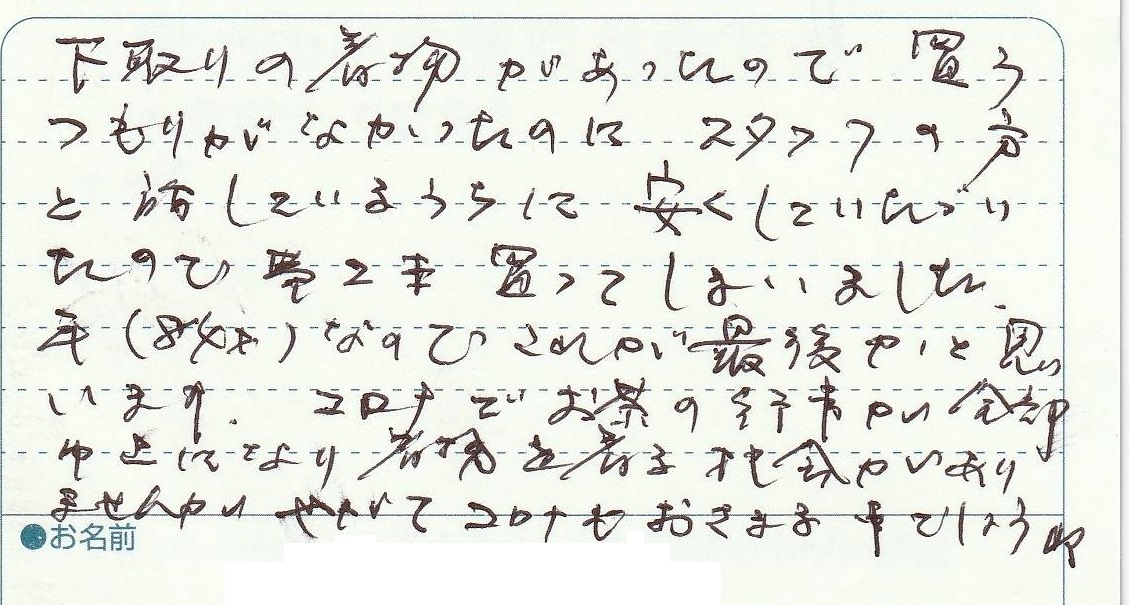 下取りの着物があったので買う
つもりがなかったのにスタッフの方
と話しているうちに安くしていただい
たので帯2本買ってしまいました。
年(84才)なのでこれが最後かと思
います。コロナでお茶の行事が全部
中止になり着物を着る機会があり
ませんが やがてコロナもおさまる事でしょう
●お名前